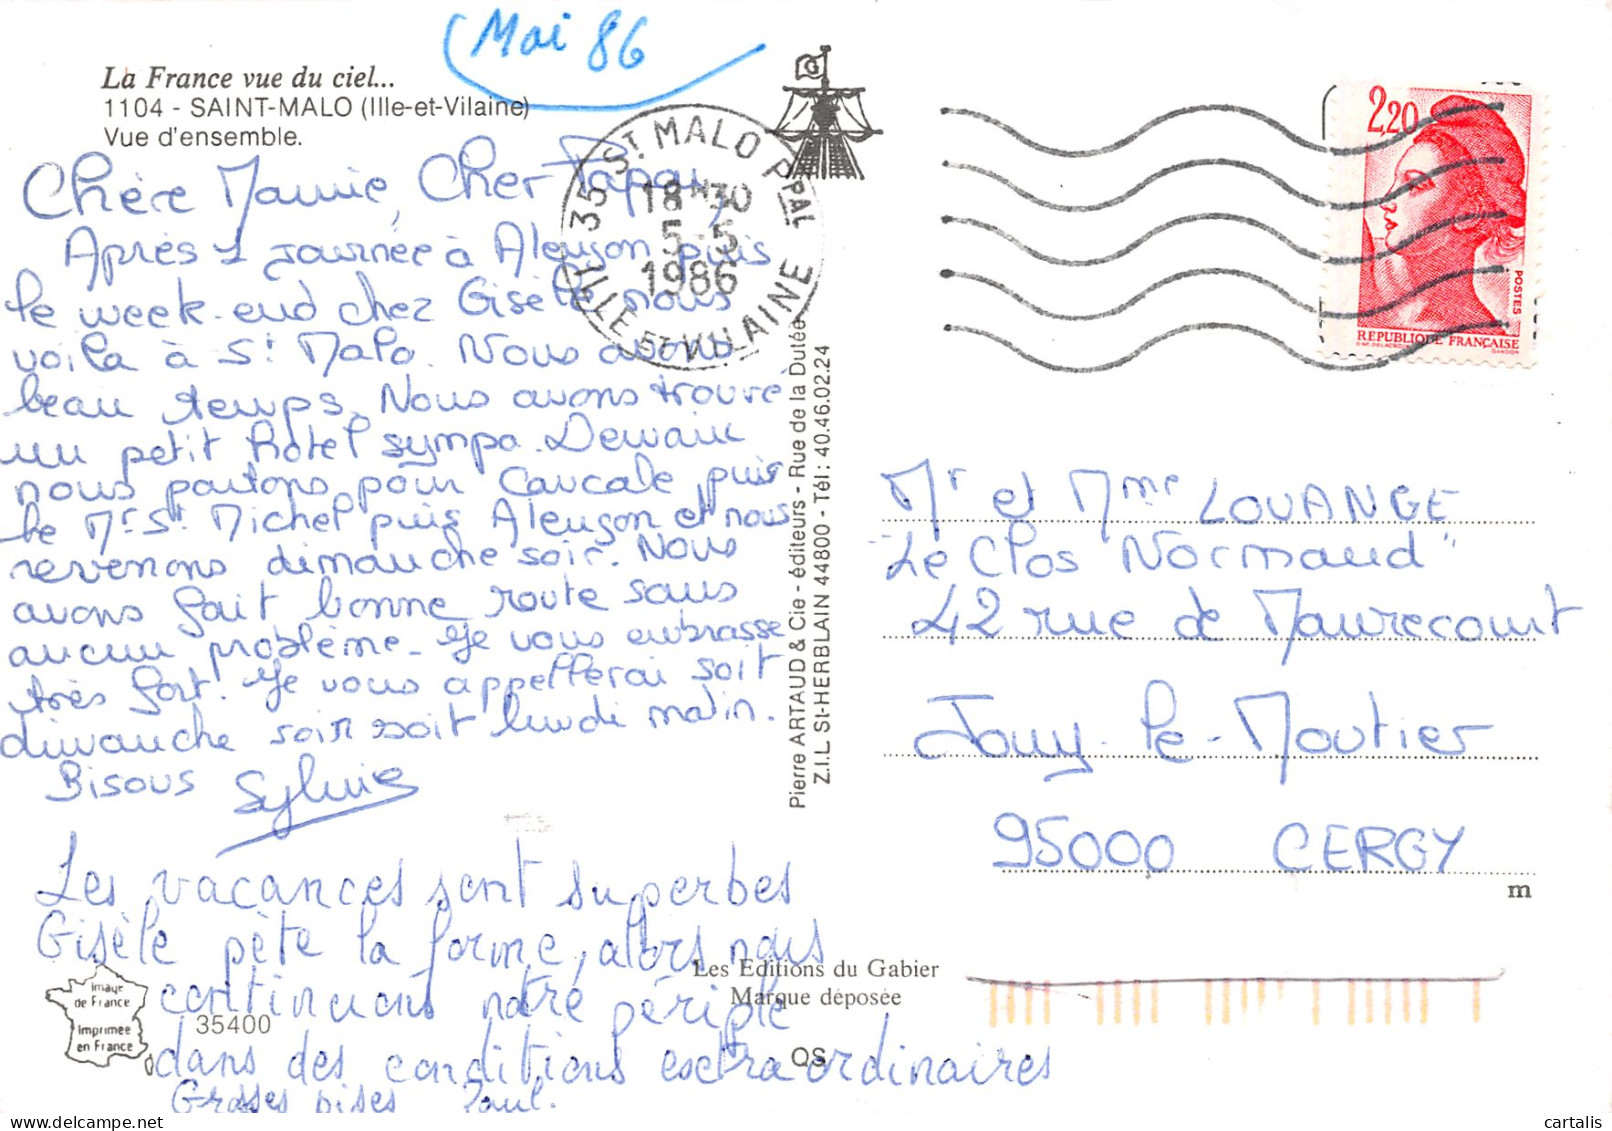 Mai 86
La France vue du ciel...
1104 - SAINT-MALO (Ille-et-Vilaine)
Vue d'ensemble.
Chère Mamie, Cher Papa,
Après 1 journée à Alençon puis
le week-end chez Gisèle nous
voila à St Malo. Nous avons
beau temps. Nous avons trouvé
un petit hôtel sympa. Demain
nous partons pour Cancale, puis
le Mt St Michel puis Alençon et nous
revenons dimanche soir. Nous
avons fait bonne route sans
aucun problème. Je vous embrasse
très fort. Je vous appellerai soit
dimanche soir soit lundi matin.
Bisous Sylvie
Les vacances sont superbes
Gisèle pète la forme, alors nous
continuons notre périple
dans des conditions extraordinaires
Grosses bises Paul.
35 ST MALO PPAL
18H30
5-5
1986
ILLE ET VILAINE
Pierre ARTAUD & Cie - éditeurs - Rue de la Dutée
Z.I.L St-HERBLAIN 44800 - Tél : 40.46.02.24
2,20
POSTES
REPUBLIQUE FRANÇAISE
GANDON
Mr et Mme LOUANGE
"Le Clos Normand"
42 rue de Maurecourt
Jouy-le-Moutier
95000 CERGY
m
Les Editions du Gabier
Marque déposée
QS
image
de France
Imprimée
en France
35400
cartalis
www.delcampe.net